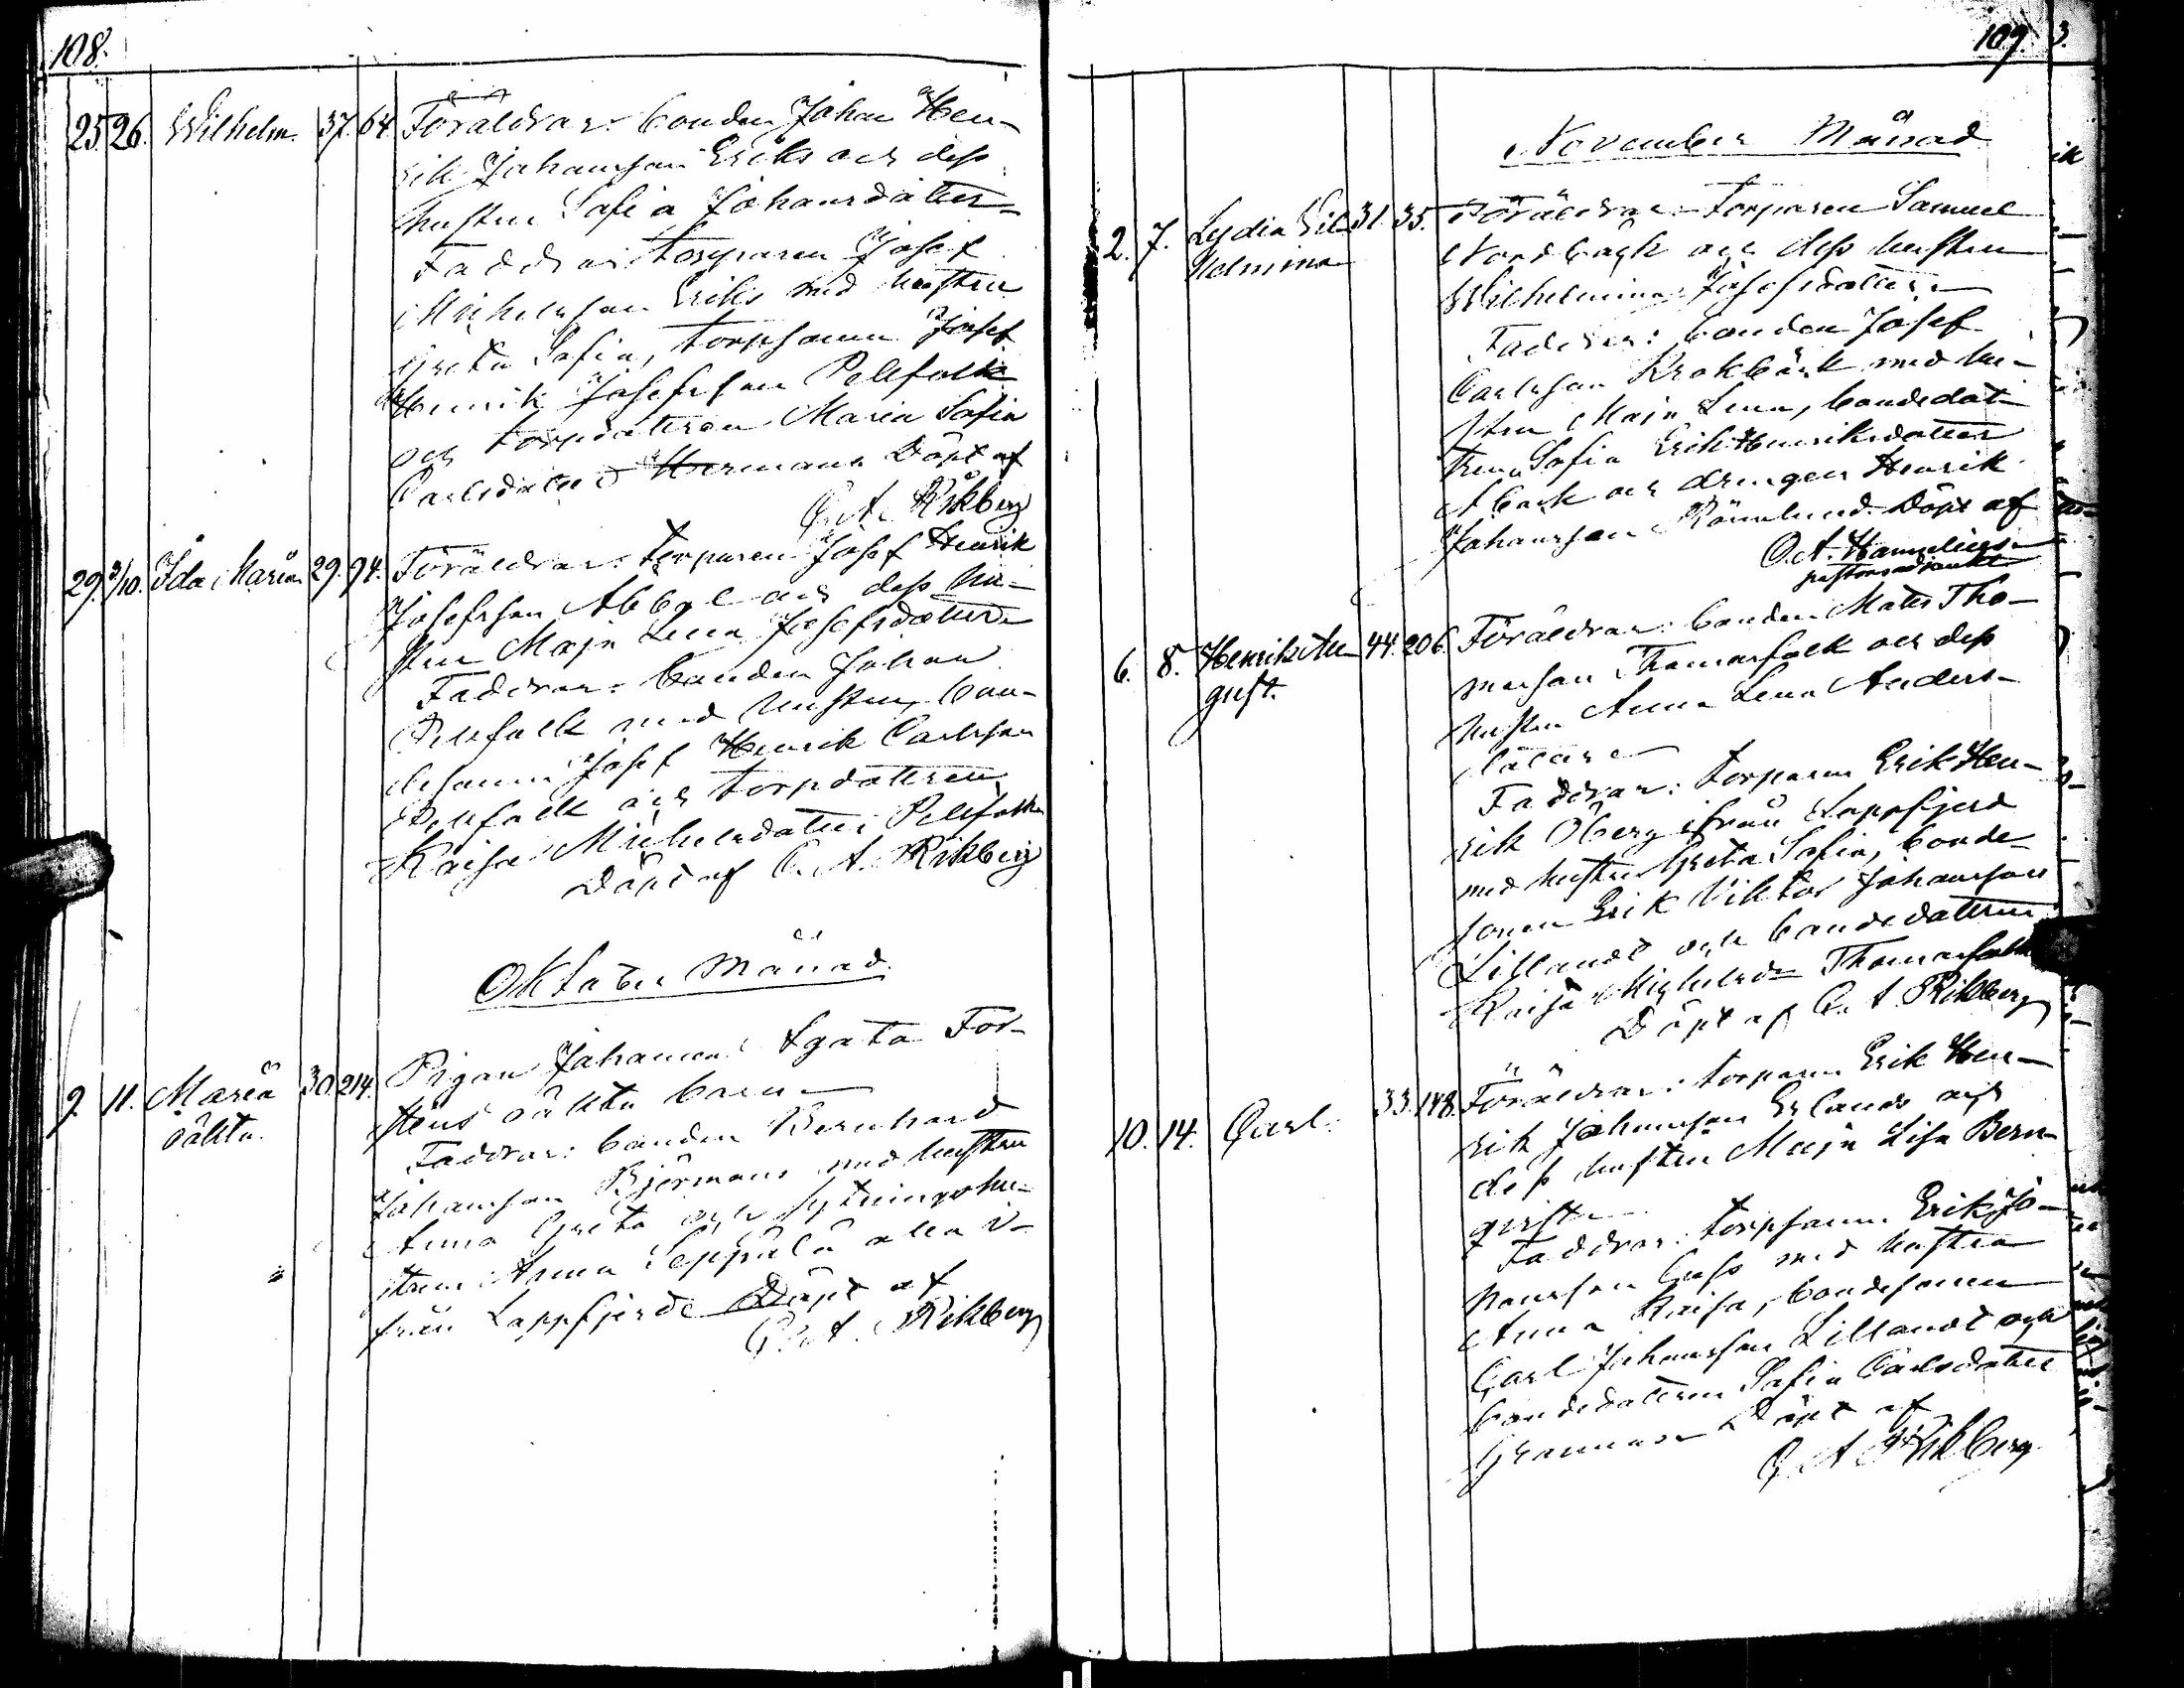 108.
25. 26. Wilhelm. 37. 64. Föräldrar: bonden Johan Hen-
rik Johansson Eriks och dess
hustru Sofia Johansdotter
Faddrar: torparen Josef
Michelsson Eriks med hustru
Greta Sofia, torpsonen Josef
Henrik Josefsson Pellfolk
och torpdottren Maria Sofia
Carlsdotter Döpt af
C. A. Rikberg
29. 3/10. Ida Maria 29. 94. Föräldrar: torparen Josef Henrik
Josefsson Abbol och dess hu-
stru Maja Lena Josefsdotter
Faddrar: bonden Johan
Pellfolk med hustru, bon-
desonen Josef Henrik Carlsson
Pellfolk och torpdottren
Kaisa Michelsdotter Pellfolk
Döpt af C. A. Rikberg
Oktober Månad
9. 11. Maria 30. 214. Pigan Johanna Agata For-
oäkta. stens oäkta barn
Faddrar: bonden Bernhard
Johansson Björmans med hustru
Anna Greta och sytningshu-
strun Anna Seppälä alla i-
från Lappfjerd Döpt af
C. A. Rikberg
109.
November Månad
2. 7. Lydia Vil- 31. 35. Föräldrar: Torparen Samuel
helmina Nordbäck och dess hustru
Wilhelmina Josefsdotter
Faddrar: bonden Josef
Carlsson Krokbäck med hu-
stru Maja Lena, bondedot-
tren Sofia Erik Henriksdotter
Åback och drengen Henrik
Johansson Rönnlund Döpt af
O. A. Hannelius
pastorsadjunkt
6. 8. Henrik Au- 44. 206. Föräldrar: bonden Mats Tho-
gust. masson Thomasfolk och dess
hustru Anna Lena Anders-
dotter
Faddrar: torparen Erik Hen-
rik Öberg ifrån Lappfjerd
med hustru Greta Sofia, bonde-
sonen Erik Viktor Johansson
Lillandt och bondedottren
Kaisa Michelsdr Thomasfolk
Döpt af C. A. Rikberg
10. 14. Carl. 33. 148. Föräldrar: torparen Erik Hen-
rik Johansson Erlands och
dess hustru Maja Lisa Bern-
qvist
Faddrar: torpsonen Erik Jo-
hansson med hustru
Anna Kaisa, bondesonen
Carl Johansson Lillandt och
bondedottren Sofia Carlsdotter
Grannas Döpt af
C. A. Rikberg